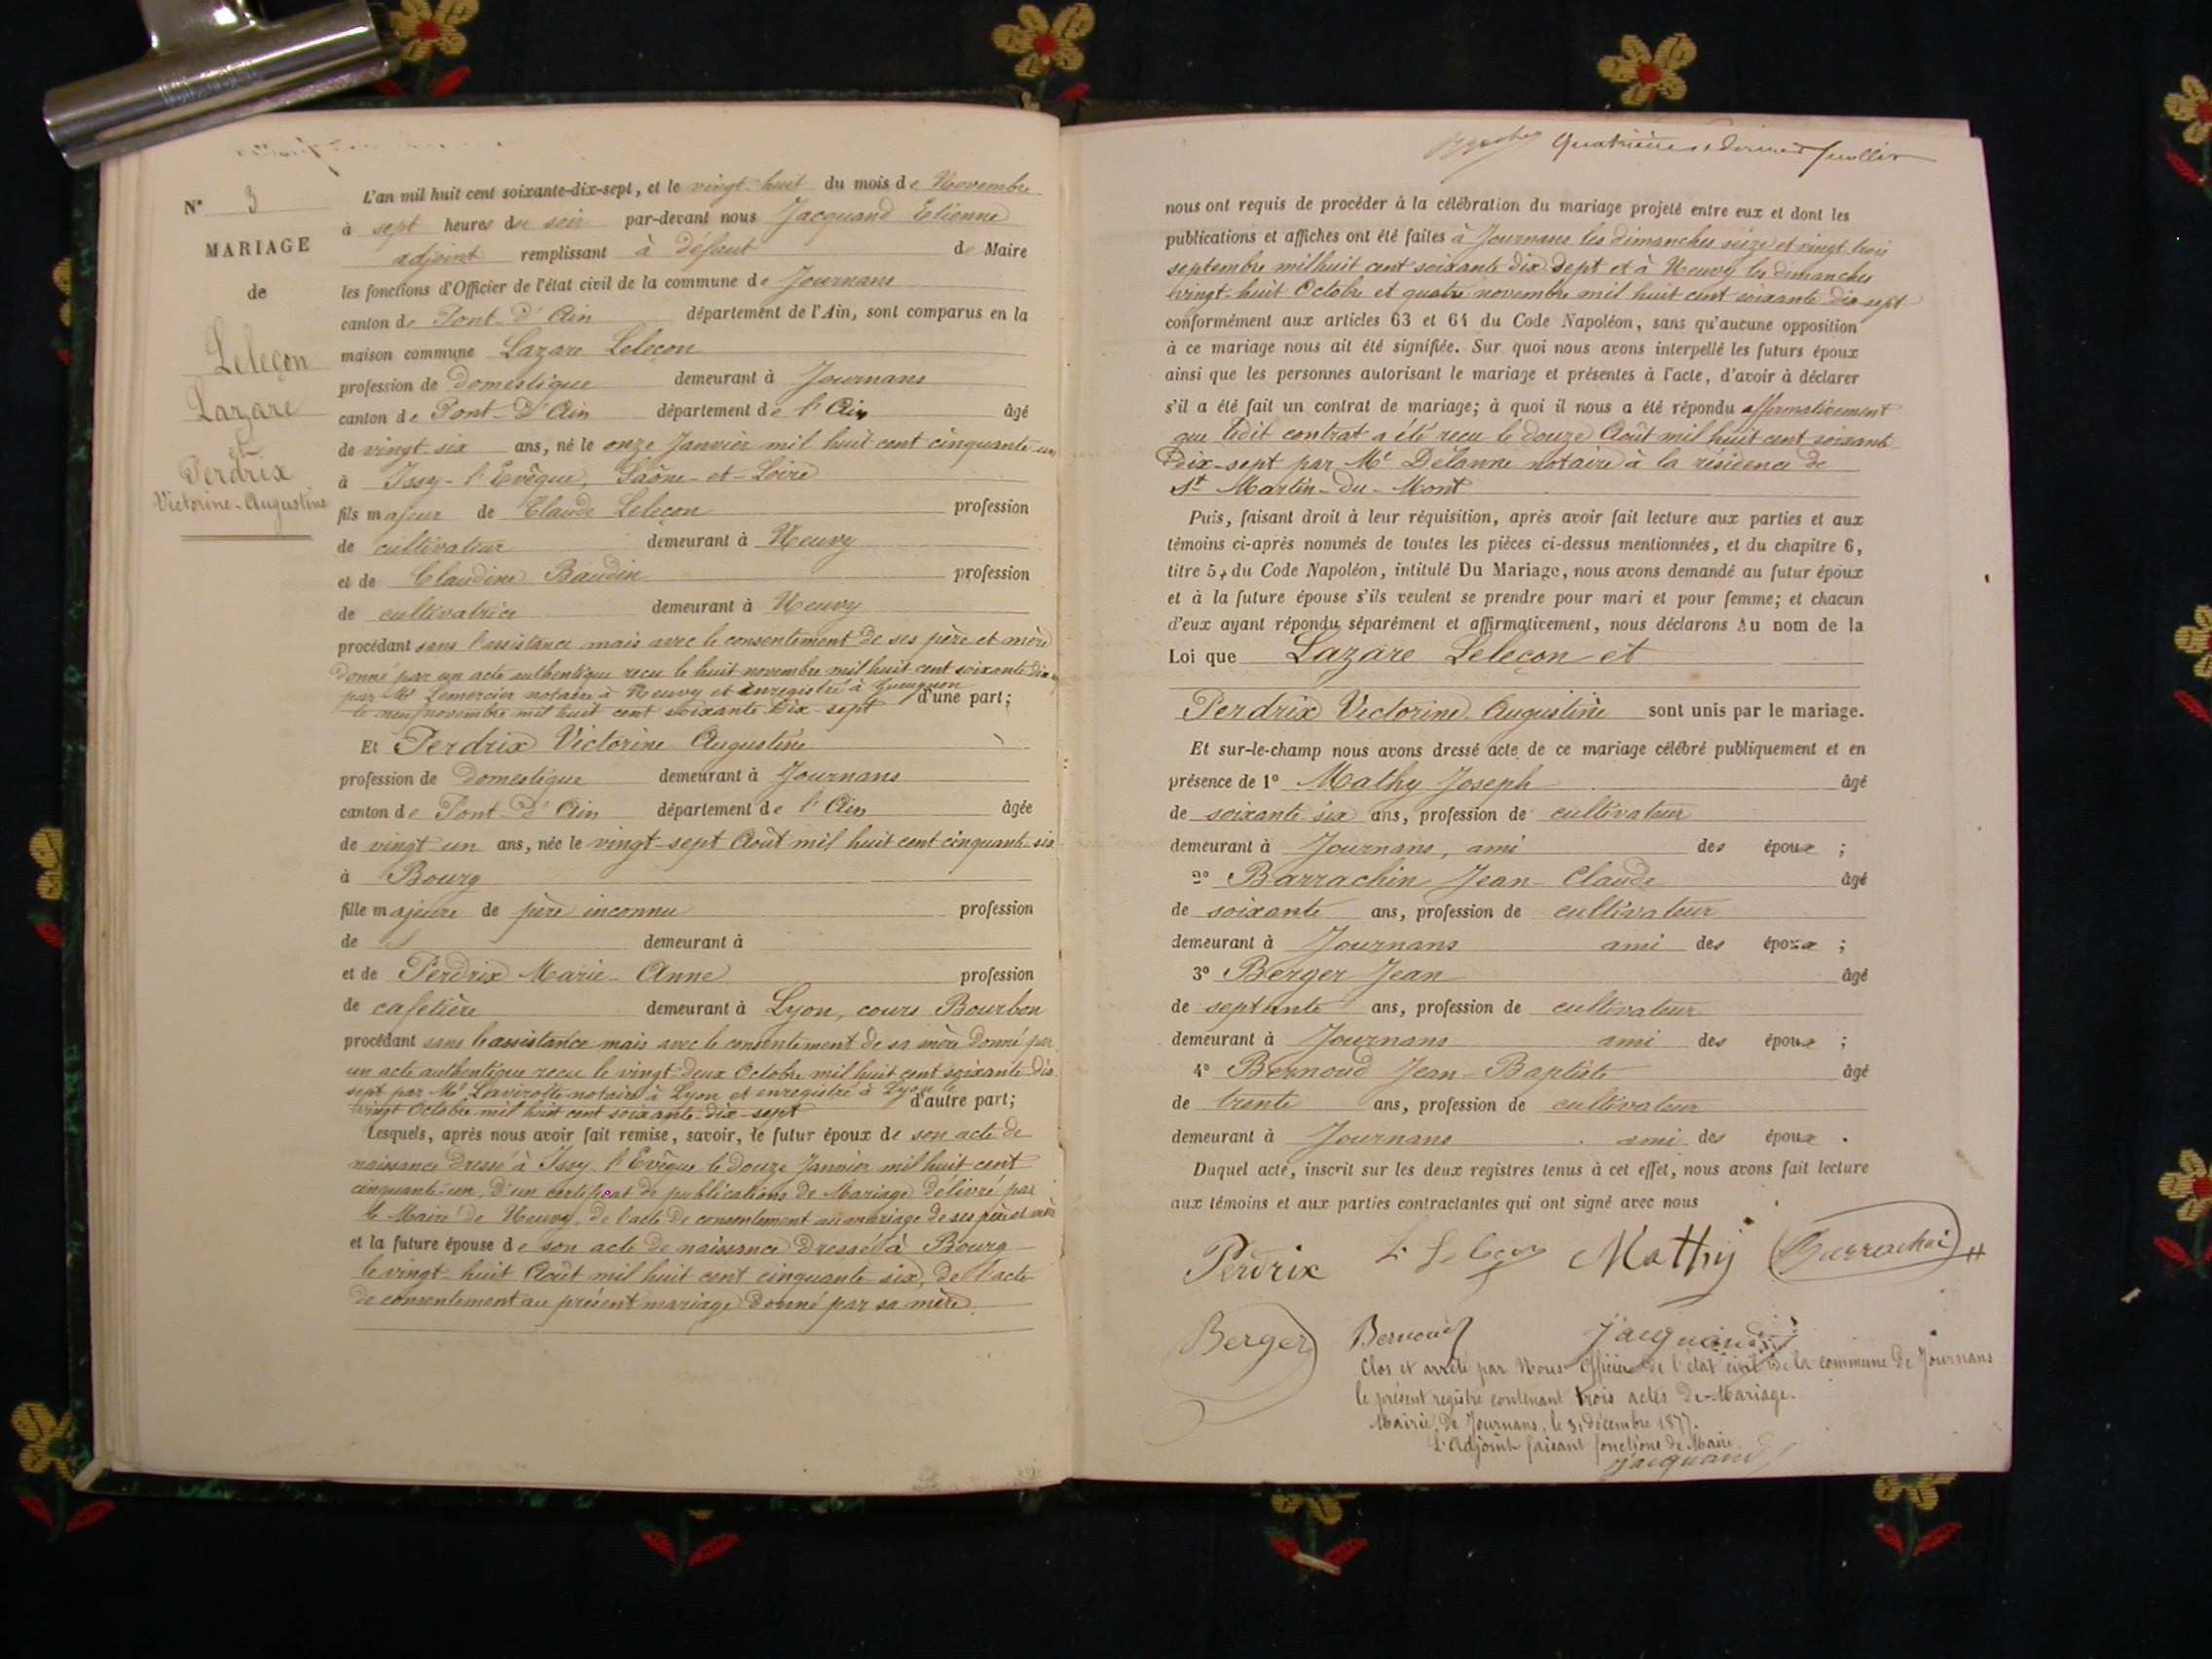 N° 3
MARIAGE
de
Leleçon
Lazare
et
Perdrix
Victorine-Augustine
L'an mil huit cent soixante-dix-sept, et le vingt-huit du mois de Novembre
à sept heures du soir par-devant nous Jacquand Etienne
adjoint remplissant à défaut de Maire
les fonctions d'Officier de l'état civil de la commune de Journans
canton de Pont-D'Ain département de l'Ain, sont comparus en la
maison commune Lazare Leleçon
profession de Domestique demeurant à Journans
canton de Pont-D'Ain département de l'Ain âgé
de vingt-six ans, né le onze Janvier mil huit cent cinquante-un
à Issy-l'Evêque, Saône-et-Loire
fils majeur de Claude Leleçon profession
de cultivateur demeurant à Neuvy
et de Claudine Baudin profession
de cultivatrice demeurant à Neuvy
procédant sans l'assistance mais avec le consentement de ses père et mère
donné par un acte authentique recu le huit novembre mil huit cent soixante dix
par Me Lemercier notaire à Neuvy et enregistré à Gueugnon
le neuf novembre mil huit cent soixante dix-sept d'une part;
Et Perdrix Victorine Augustine
profession de Domestique demeurant à Journans
canton de Pont D'Ain département de l'Ain âgée
de vingt un ans, née le vingt-sept Août mil huit cent cinquante-six
à Bourg
fille majeure de père inconnu profession
de demeurant à
et de Perdrix Marie-Anne profession
de cafetière demeurant à Lyon, cours Bourbon
procédant sans l'assistance mais avec le consentement de sa mère donné par
un acte authentique recu le vingt-deux Octobre mil huit cent soixante-dix
sept par Me Lavirotte notaire à Lyon et enregistré à Lyon le
vingt Octobre mil huit cent soixante-dix-sept d'autre part;
Lesquels, après nous avoir fait remise, savoir, le futur époux de son acte de
naissance dressé à Issy-l'Evêque le douze Janvier mil huit cent
cinquante-un, D'un certificat de publications de Mariage délivré par
le Maire de Neuvy, de l'acte de consentement au mariage de ses père et mère
et la future épouse de son acte de naissance dressé à Bourg
le vingt-huit Août mil huit cent cinquante-six, de l'acte
de consentement au présent mariage donné par sa mère.
Quatrième et dernier feuillet
nous ont requis de procéder à la célébration du mariage projeté entre eux et dont les
publications et affiches ont été faites à Journans les dimanches seize et vingt trois
septembre mil huit cent soixante dix sept et à Neuvy les dimanches
vingt-huit Octobre et quatre novembre mil huit cent soixante-dix-sept
conformément aux articles 63 et 64 du Code Napoléon, sans qu'aucune opposition
à ce mariage nous ait été signifiée. Sur quoi nous avons interpellé les futurs époux
ainsi que les personnes autorisant le mariage et présentes à l'acte, d'avoir à déclarer
s'il a été fait un contrat de mariage; à quoi il nous a été répondu affirmativement
que ledit contrat a été recu le douze Août mil huit cent soixante
dix-sept par Me Delanne notaire à la résidence de
St Martin-du-Mont
Puis, faisant droit à leur réquisition, après avoir fait lecture aux parties et aux
témoins ci-après nommés de toutes les pièces ci-dessus mentionnées, et du chapitre 6,
titre 5, du Code Napoléon, intitulé Du Mariage, nous avons demandé au futur époux
et à la future épouse s'ils veulent se prendre pour mari et pour femme; et chacun
d'eux ayant répondu séparément et affirmativement, nous déclarons Au nom de la
Loi que Lazare Leleçon et
Perdrix Victorine Augustine sont unis par le mariage.
Et sur-le-champ nous avons dressé acte de ce mariage célébré publiquement et en
présence de 1° Mathy Joseph âgé
de soixante six ans, profession de cultivateur
demeurant à Journans, ami des époux ;
2° Barrachin Jean-Claude âgé
de soixante ans, profession de cultivateur
demeurant à Journans ami des époux ;
3° Berger Jean âgé
de septante ans, profession de cultivateur
demeurant à Journans ami des époux ;
4° Bernoud Jean-Baptiste âgé
de trente ans, profession de cultivateur
demeurant à Journans ami des époux .
Duquel acte, inscrit sur les deux registres tenus à cet effet, nous avons fait lecture
aux témoins et aux parties contractantes qui ont signé avec nous
Perdrix L. Leleçon Mathy Barrachin
Berger Bernoud Jacquand
Clos et arrêté par Nous Officier de l'état civil de la commune de Journans
le présent registre contenant trois actes de Mariage.
Mairie de Journans, le 31 décembre 1877.
L'Adjoint faisant fonctions de Maire
Jacquand